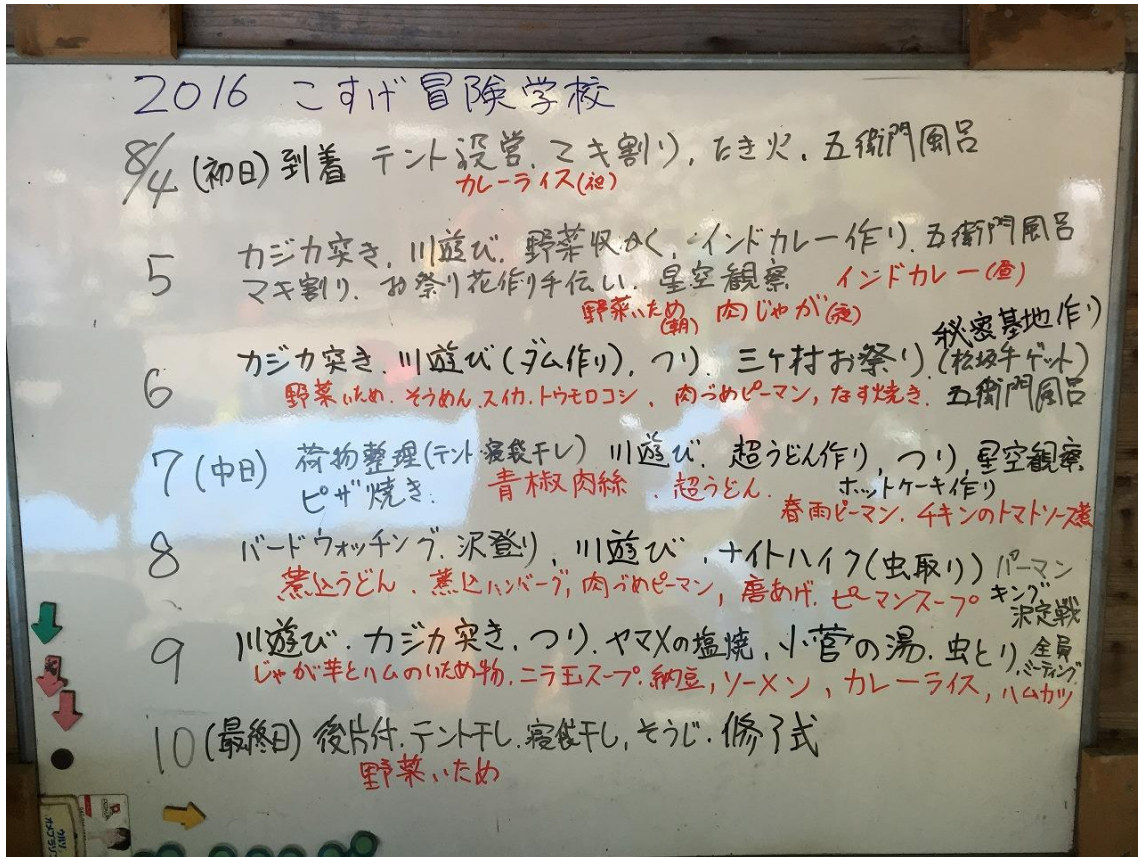 2016 こすげ冒険学校
8/4 (初日) 到着 テント設営、マキ割り、たき火、五衛門風呂
カレーライス(夜)
5 カジカ突き、川遊び、野菜収かく、インドカレー作り、五衛門風呂
マキ割り、お祭り花作り手伝い、星空観察 インドカレー(昼)
野菜いため(朝) 肉じゃが(夜)
秘密基地作り
6 カジカ突き、川遊び(ダム作り)、つり、三ケ村お祭り、(松坂牛ゲット)
野菜いため、そうめん、スイカ、トウモロコシ、肉づめピーマン、なす焼き、五衛門風呂
7 (中日) 荷物整理(テント・寝袋干し) 川遊び、超うどん作り、つり、星空観察
ピザ焼き、青椒肉絲、超うどん、ホットケーキ作り
春雨ピーマン、チキンのトマトソース煮
8 バードウォッチング、沢登り、川遊び、ナイトハイク(虫取り) パーマン
煮込うどん、煮込ハンバーグ、肉づめピーマン、唐あげ、ピーマンスープ キング
決定戦
9 川遊び、カジカ突き、つり、ヤマメの塩焼、小菅の湯、虫とり、全員
ミーティング
じゃが芋とハムのいため物、ニラ玉スープ、納豆、ソーメン、カレーライス、ハムカツ
10 (最終日) 後片付、テント干し、寝袋干し、そうじ、修了式
野菜いため